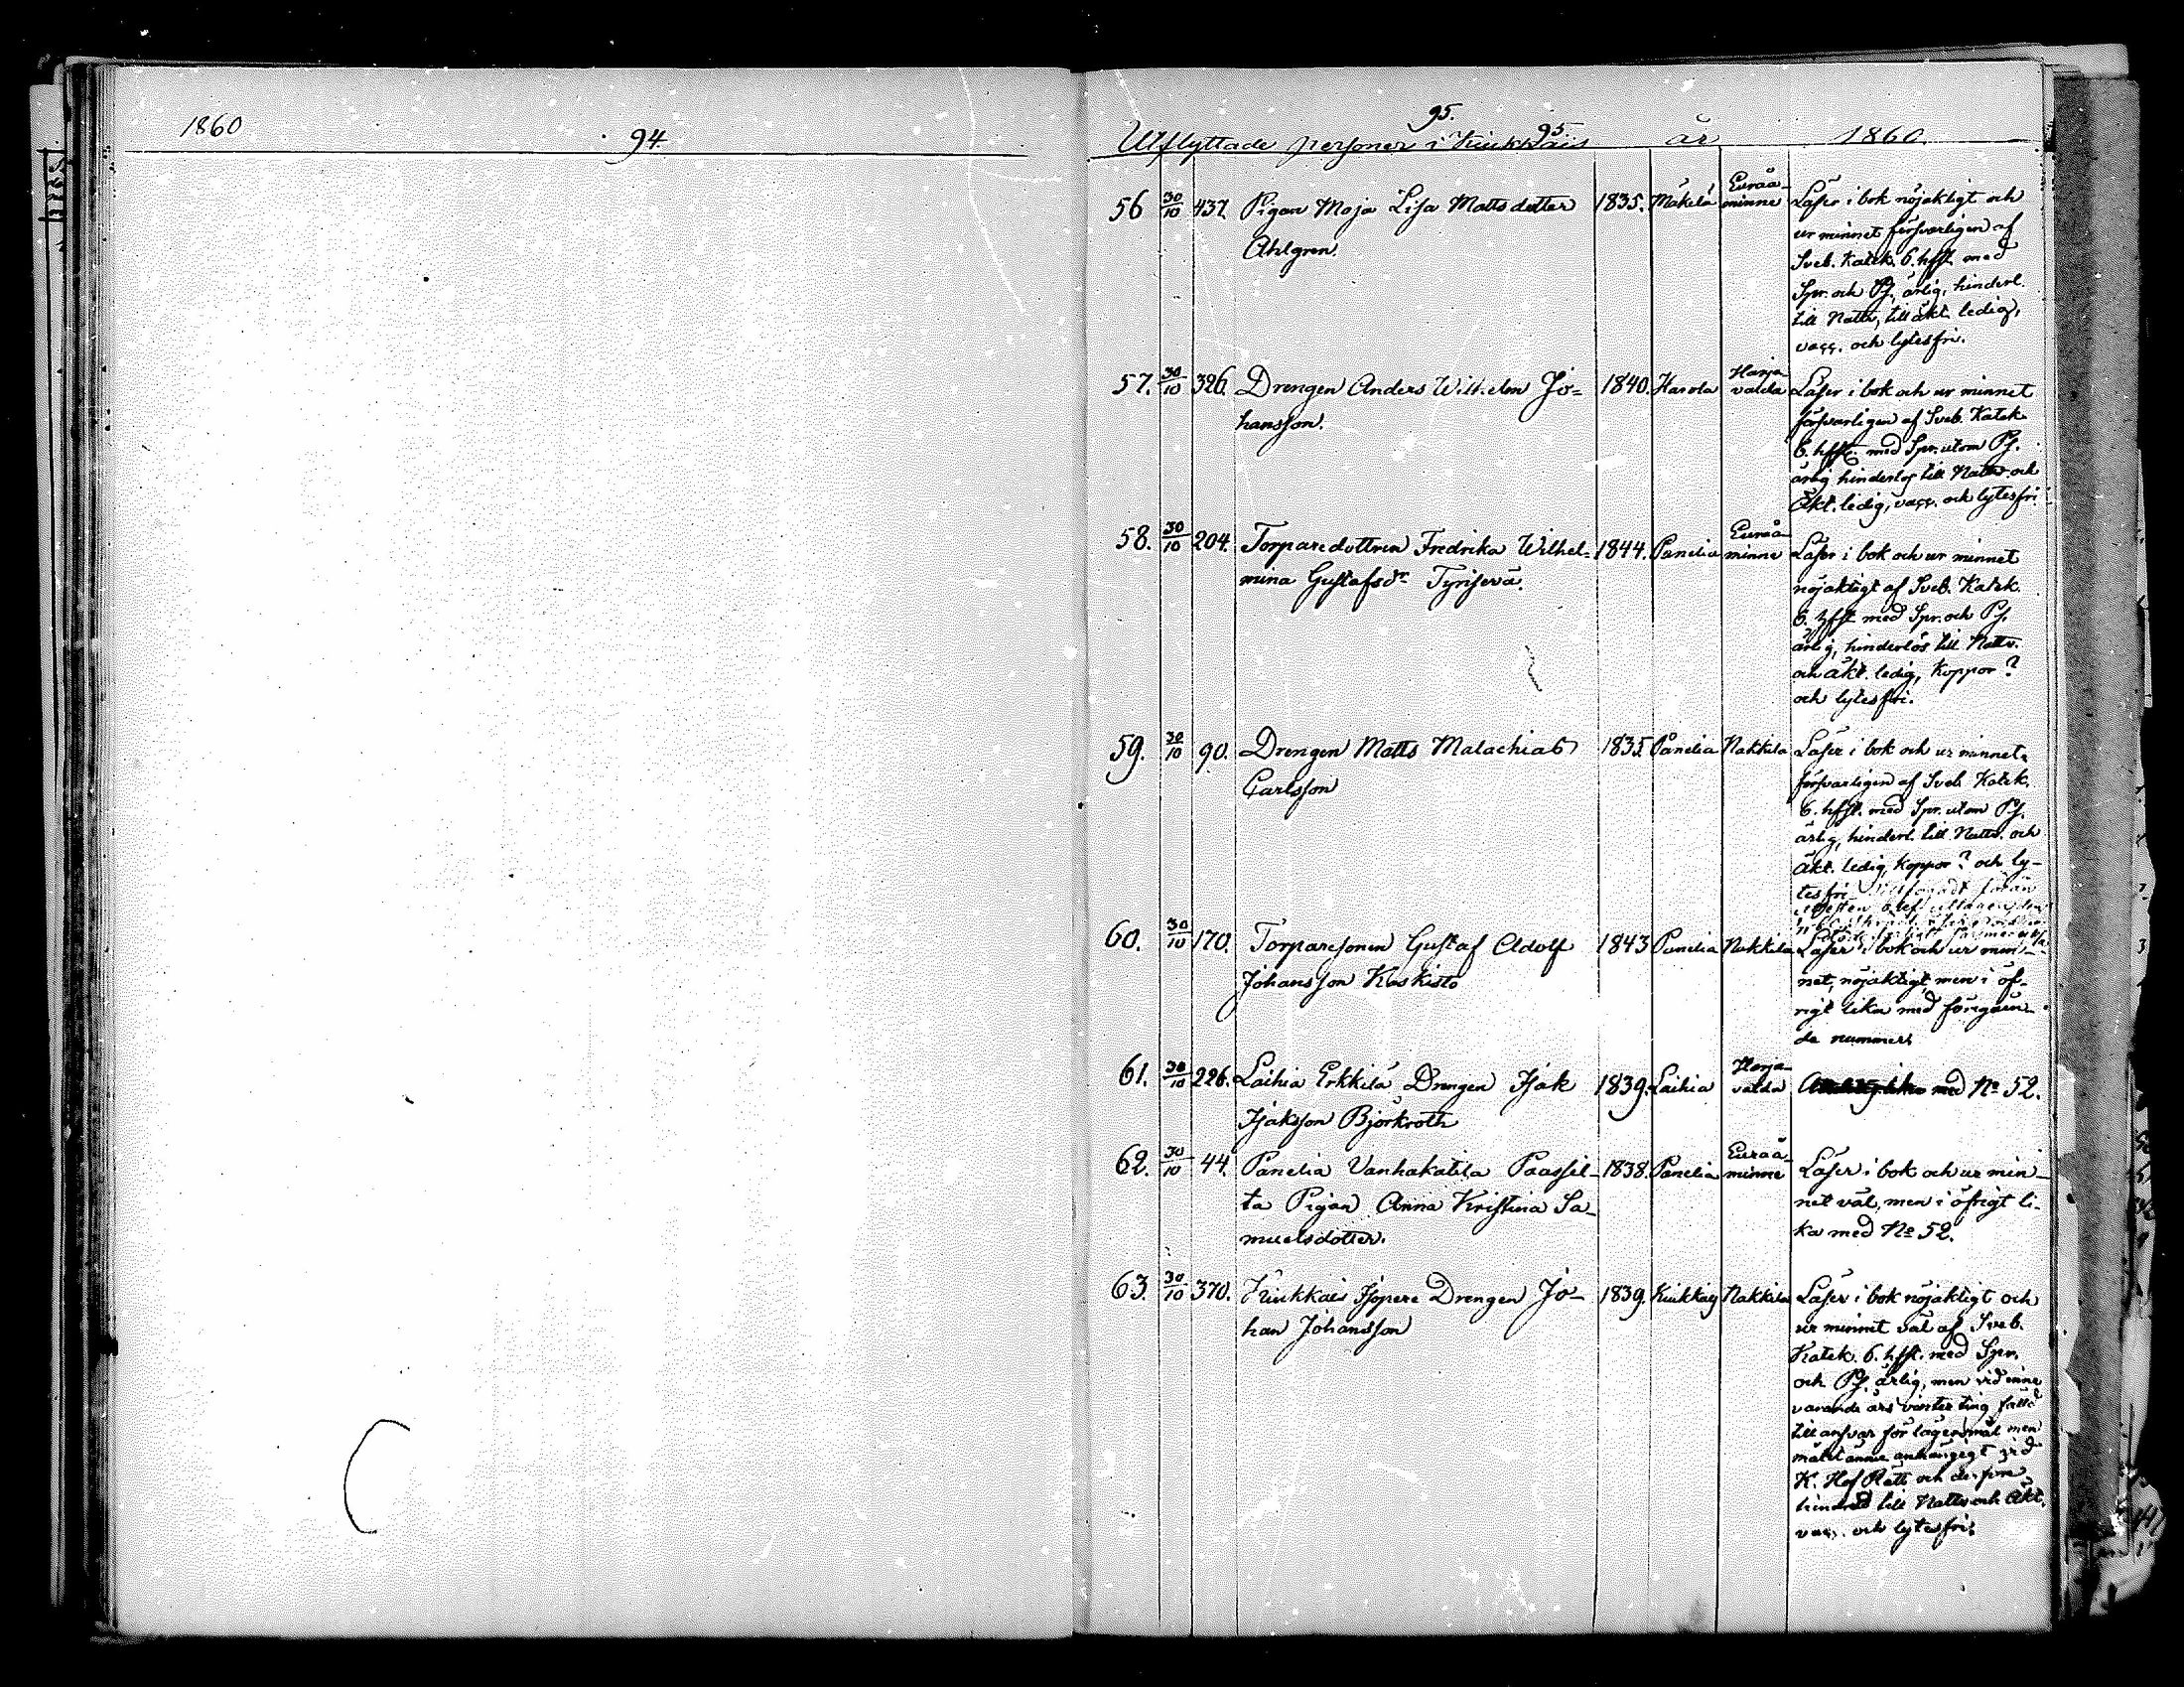 1860
94.
95.
95
Utflyttade personer i Kiukkais år 1860.
56 30/10 437. Pigan Maja Lisa Mattsdotter 1835. Mäkelä Euraå-
minne Läser i bok nöjaktigt och
Ahlgren. ur minnet försvarligen af
Sveb. Katek. 6. hfst. med
Spr. och Ps. ärlig, hinderl.
till Nattv, till äkt. ledig,
vacc. och lytesfri.
57. 30/10 326. Drengen Anders Wilhelm Jo- 1840. Harola Harja-
valda Läser i bok och ur minnet
hansson. försvarligen af Sveb. Katek.
6. hfst. med Spr. utom Ps.
ärlig hinderlös till Nattv och
Äkt. ledig, vacc. och lytesfri.
58. 30/10 204. Torparedottren Fredrika Wilhel- 1844. Panelia Euraå-
minne Läser i bok och ur minnet
mina Gustafsdr. nöjaktigt af Sveb. Katek.
6. hfst med Spr. och Ps.
ärlig, hinderlös till Nattv.
och äkt. ledig, koppor?
och lytesfri.
59. 30/10 90. Drengen Matts Malachias 1835. Panelia Nakkila Läser i bok och ur minnet
Carlsson försvarligen af Sveb. Katek.
6. hfst. med Spr. utom Ps.
ärlig, hinderl. till Nattv. och
äkt. ledig, koppor? och ly-
tesfri.
60. 30/10 170. Torparesonen Gustaf Adolf 1843 Panelia Nakkila Läser i bok och ur min-
Johansson Koskisto net, nöjaktigt, men i öf-
rigt lika med föregåen-
de nummer.
61. 30/10 226. Laihia Erkkilä Drengen Isak 1839. Laihia Harja-
valda med No 52.
Isaksson Björkroth
62. 30/10 44. Panelia Vanhakatila Paassil- 1838. Panelia Euraå-
minne Läser i bok och ur min-
ta Pigan Anna Kristina Sa- net väl, men i öfrigt li-
muelsdotter. ka med No 52.
63. 30/10 370. Kiukkais Drengen Jo- 1839. Kiukkais Nakkila Läser i bok nöjaktigt och
han Johansson ur minnet väl af Sveb.
Katek. 6. hfst. med Spr.
och Ps. ärlig, men vid inne
varande års vinter ting fälld
till ansvar för lägersmål men
målet ännu anhängigt vid
K. Hof Rätt och derföre
hindrad till Nattv och Äkt.
vacc. och lytesfri.